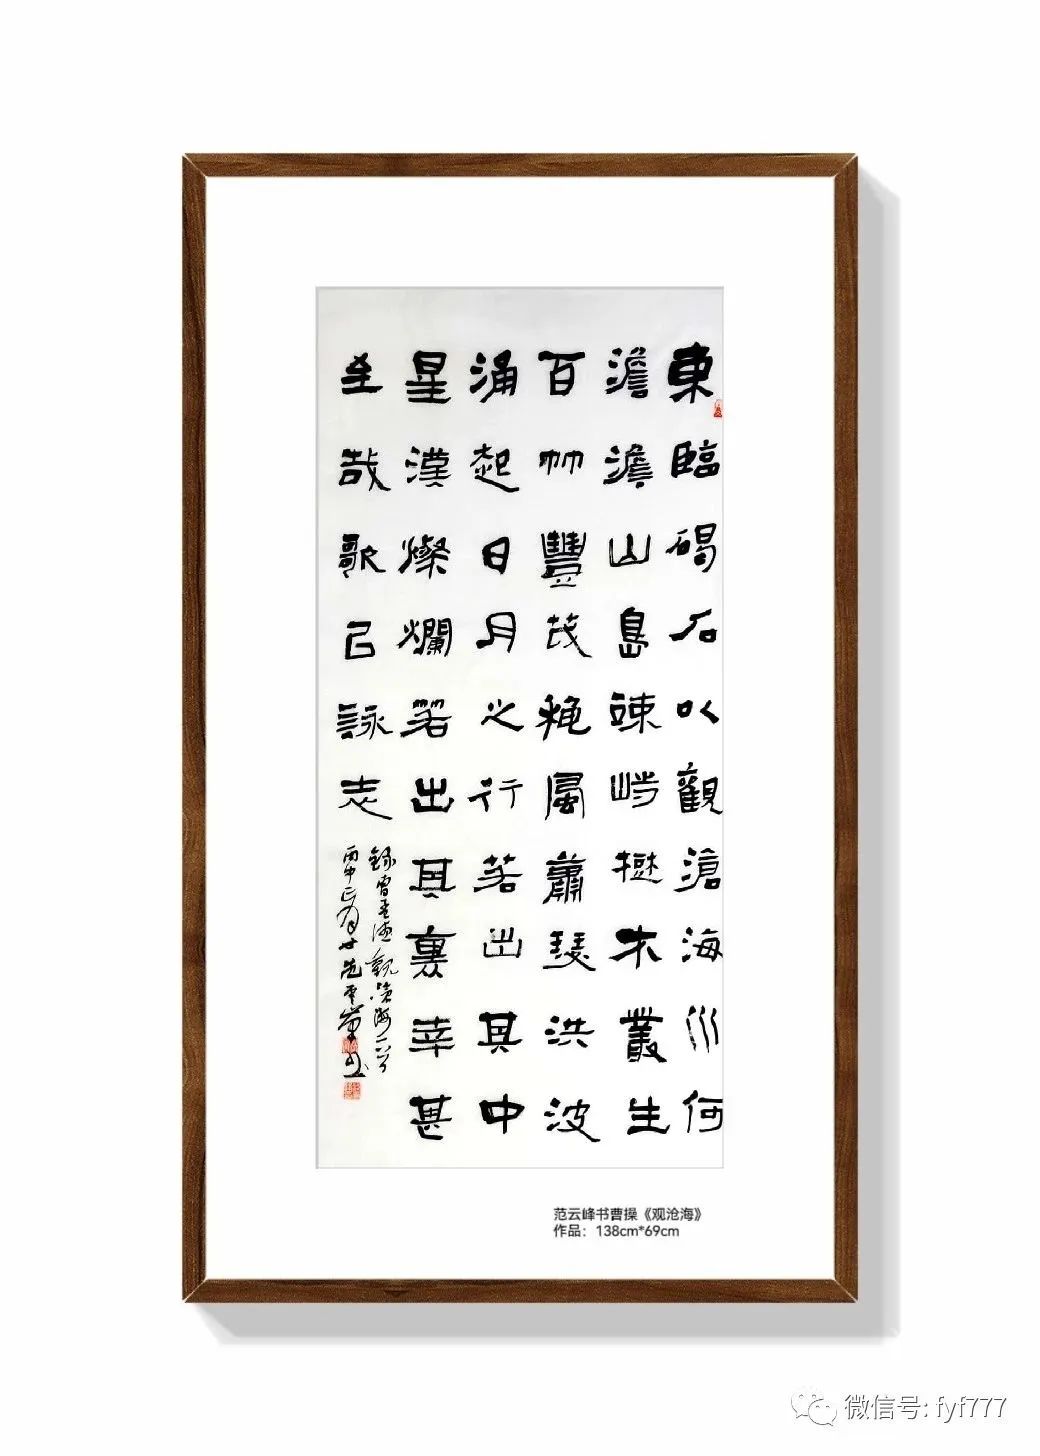 東臨碣石以觀滄海水何
澹澹山島竦峙樹木叢生
百艸豐茂穐風蕭瑟洪波
涌起日月之行若出其中
星漢燦爛若出其裏幸甚
至哉歌㠯詠志
錄曹孟德觀滄海一首
丙申正月廿范雲峯书
范云峰书曹操《观沧海》
作品：138cm*69cm
微信号: fyf777